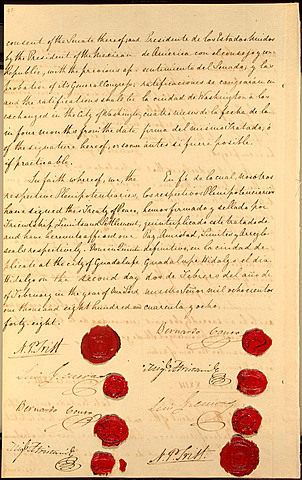 consent of the Senate thereof; and
by the President of the Mexican
Republic, with the previous ap-
probation of its General Congress;
and the ratifications shall be
exchanged in the City of Washington,
in four months from the date
of the signature hereof, or sooner
if practicable.
In faith whereof, we, the
respective Plenipotentiaries,
have signed this Treaty of Peace,
Friendship, Limits and Settlement,
and have hereunto affixed our
seals respectively. Done in Quin-
plicate at the City of Guadalupe
Hidalgo on the second day
of February in the year of Our Lord
one thousand eight hundred and
forty-eight.
N. P. Trist
Luis G. Cuevas
Bernardo Couto
Migl. Atristain
Presidente de los Estados Unidos
de America con el consejo y con-
sentimiento del Senado; y las
ratificaciones se cangearán en
la ciudad de Washington a los
cuatro meses de la fecha de la
firma del mismo Tratado, ó
antes si fuere posible.
En fé de lo cual, nosotros
los respectivos Plenipotenciarios
hemos firmado y sellado por
quintuplicado este tratado de
Paz, Amistad, Limites y Arreglo
definitivo, en la ciudad de
Guadalupe Hidalgo el dia
dos de Febrero del año de
nuestro Señor mil ochocientos
cuarenta y ocho.
Bernardo Couto
Migl. Atristain
Luis G. Cuevas
N. P. Trist